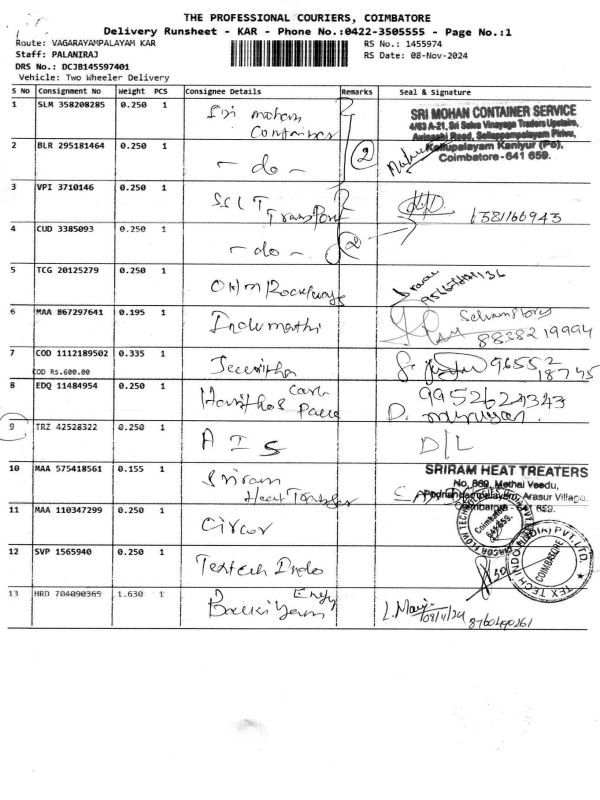 THE PROFESSIONAL COURIERS, COIMBATORE
Delivery Runsheet - KAR - Phone No.:0422-3505555 - Page No.:1
Route: VAGARAYAMPALAYAM KAR
RS No.: 1455974
Staff: PALANIRAJ
RS Date: 08-Nov-2024
DRS No.: DCJB145597401
Vehicle: Two Wheeler Delivery
S No Consignment No Weight PCS Consignee Details Remarks Seal & Signature
1 SLM 358208285 0.250 1 Sri mohan
Container
SRI MOHAN CONTAINER SERVICE
4/63 A-21, Sri Selva Vinayaga Traders Upstairs,
Avinashi Road, Sellappampalayam Pirivu,
Kallupalayam Kaniyur (Po),
Coimbatore - 641 659.
2 BLR 295181464 0.250 1 - do - 2
3 VPI 3710146 0.250 1 SCLT
Transport
6381166943
4 CUD 3385093 0.250 1 - do - 2
5 TCG 20125279 0.250 1
6 MAA 867297641 0.195 1 Indumathi Selvam Story
8838219994
7 COD 1112189502 0.335 1 96552
18745
COD Rs.600.00
8 EDQ 11484954 0.250 1
D. murugan.
9 TRZ 42528322 0.250 1 A I S D/L
10 MAA 575418561 0.155 1 Sriram
Heat
SRIRAM HEAT TREATERS
No. 869, Methai Veedu,
Arasur Village,
Coimbatore - 641 659.
11 MAA 110347299 0.250 1 Circor
CIRCOR FLOW TECHNOLOGIES
Coimbatore
641 659.
12 SVP 1565940 0.250 1 Textech Indo
TEX TECH INDO (INDIA) PVT. LTD.
COIMBATORE
13 HRD 704090365 1.630 1
L. Mary
08/11/24
8760490261